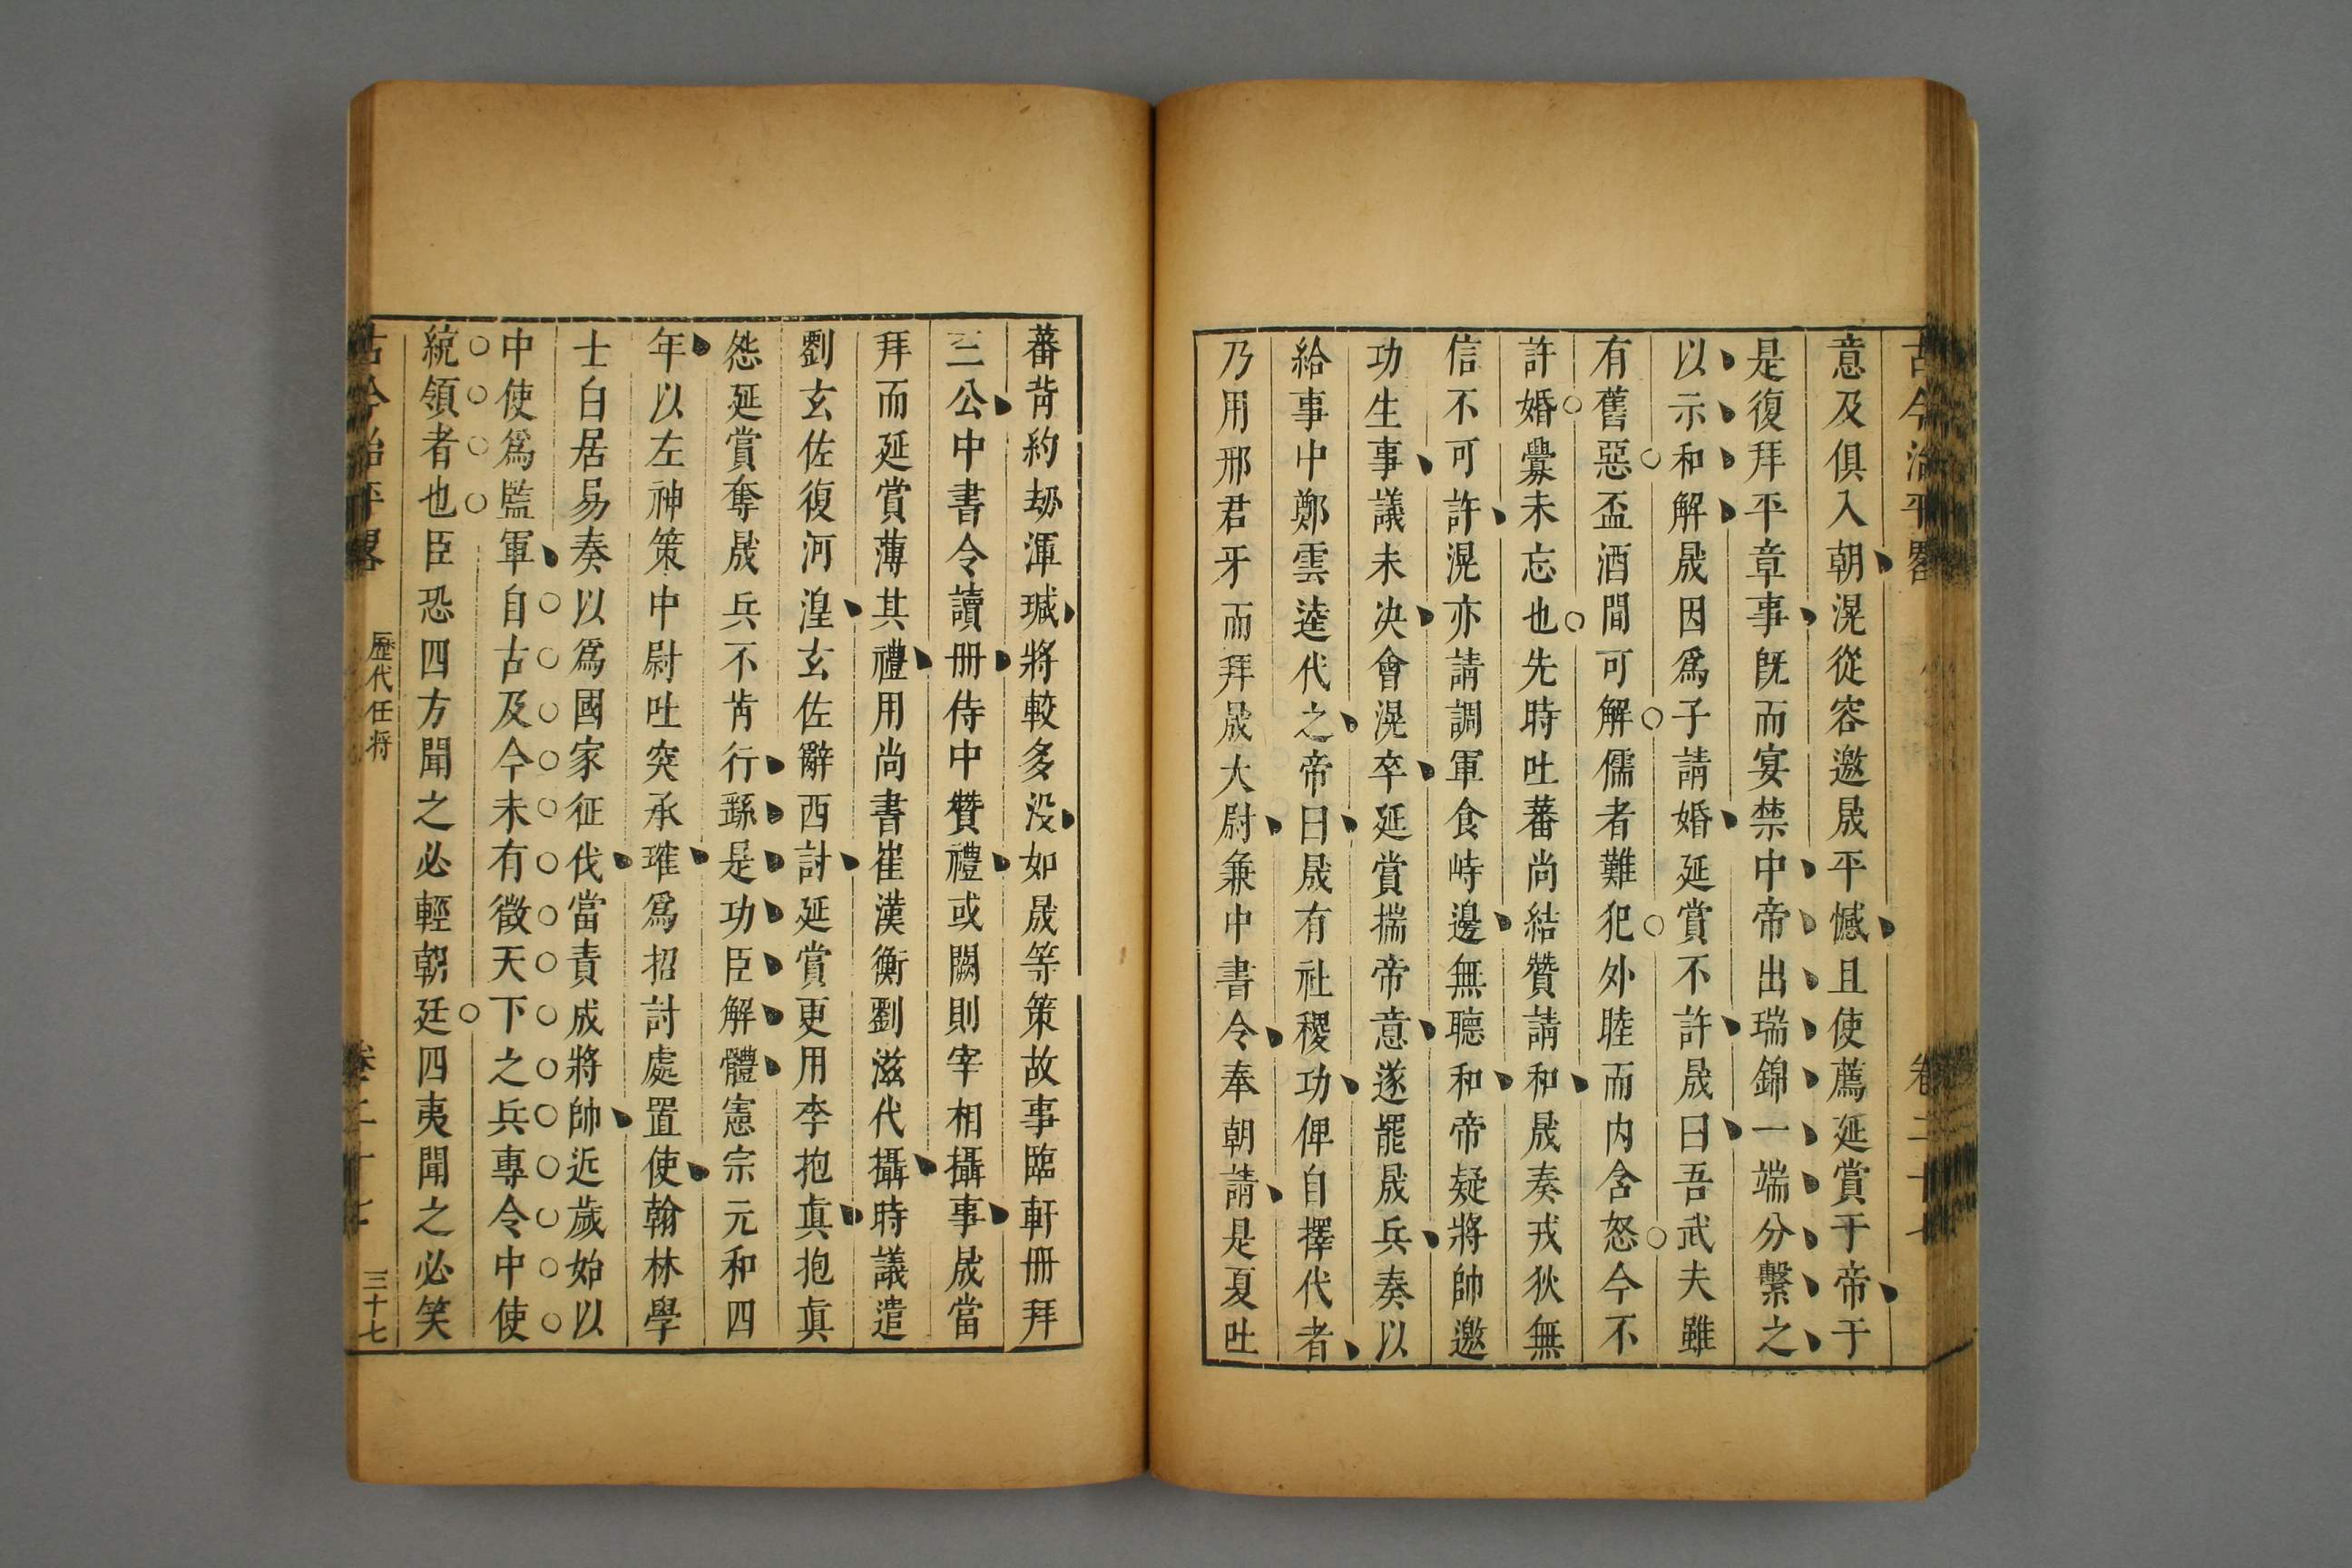 古今治平畧 卷二十七
意及俱入朝滉從容邀晟平憾且使薦延賞于帝于
是復拜平章事旣而宴禁中帝出瑞錦一端分繫之
以示和解晟因爲子請婚延賞不許晟曰吾武夫雖
有舊惡盃酒間可解儒者難犯外睦而内含怒今不
許婚釁未忘也先時吐蕃尚結贊請和晟奏戎狄無
信不可許滉亦請調軍食峙邊無聽和帝疑將帥邀
功生事議未决會滉卒延賞揣帝意遂罷晟兵奏以
給事中鄭雲逵代之帝曰晟有社稷功俾自擇代者
乃用邢君牙而拜晟大尉兼中書令奉朝請是夏吐
蕃背約刼渾瑊將較多没如晟等策故事臨軒冊拜
三公中書令讀冊侍中贊禮或闕則宰相攝事晟當
拜而延賞薄其禮用尚書崔漢衡劉滋代攝時議遣
劉玄佐復河湟玄佐辭西討延賞更用李抱眞抱眞
怨延賞奪晟兵不肯行繇是功臣解體憲宗元和四
年以左神策中尉吐突承璀爲招討處置使翰林學
士白居易奏以爲國家征伐當責成將帥近歲始以
中使爲監軍自古及今未有徵天下之兵專令中使
統領者也臣恐四方聞之必輕朝廷四夷聞之必笑
古今治平畧 歷代任将 卷二十七 三十七